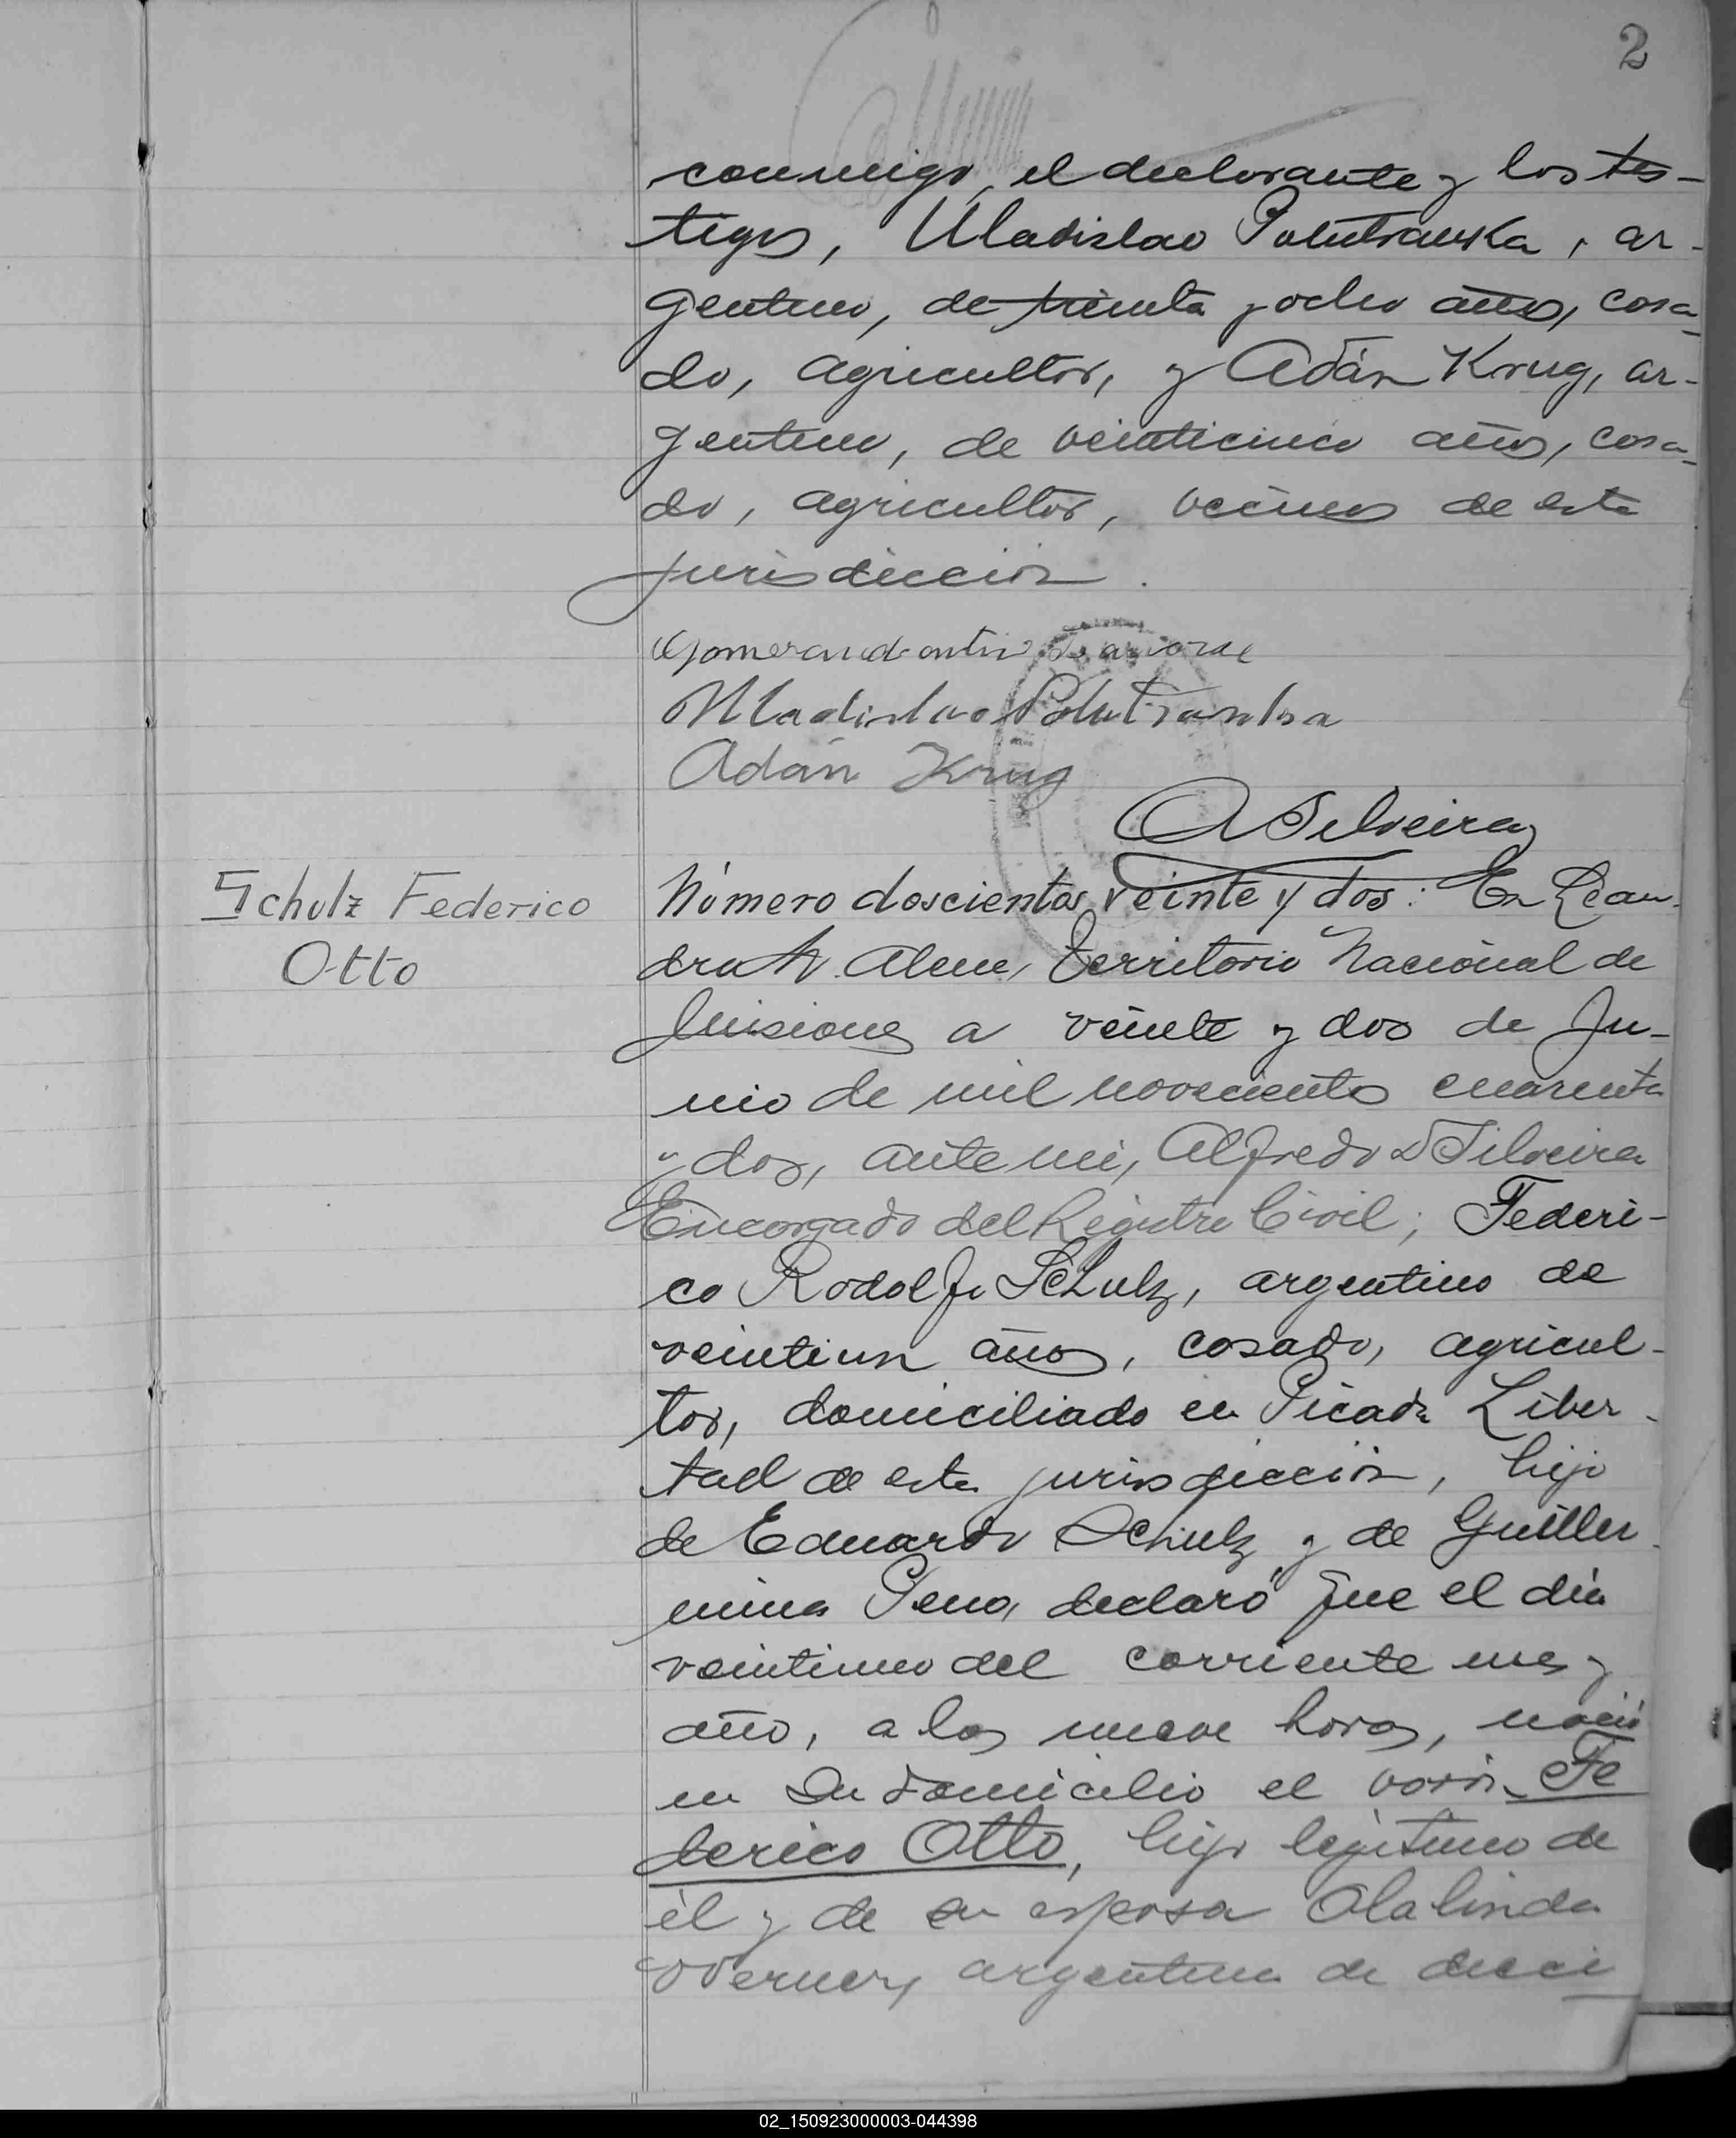 2
conmigo, el declarante y los tes-
tigos, Uladislao Polutranka, ar-
gentino, de treinta y ocho años, casa-
do, agricultor, y Adán Krug, ar-
gentino, de veinticinco años, casa-
do, agricultor, vecinos de esta
jurisdicción.
Uladislao Polutranka
Adán Krug
A Silveira
Schulz Federico
Otto
Número doscientos veinte y dos: En Lean-
dro N. Alem, Territorio Nacional de
Misiones a veinte y dos de Ju-
nio de mil novecientos cuarenta
y dos, ante mi, Alfredo D Silveira
Encargado del Registro Civil; Federi-
co Rodolfo Schulz, argentino de
veintiun años, casado, agricul-
tor, domiciliado en Picada Liber-
tad de esta jurisdicción, hijo
de Eduardo Schulz y de Guiller-
mina Pena, declaró que el día
veintiuno del corriente mes y
año, a las nueve horas, nació
en su domicilio el varón Fe
derico Otto, hijo legítimo de
él y de su esposa Olalinda
Werner, argentina de dieci
02_150923000003-044398